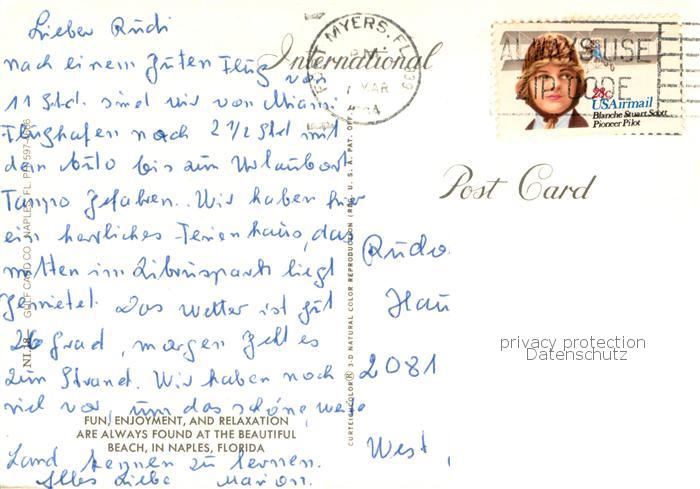 Lieber Rudi
nach einem guten Flug von
11 Std. sind wir von Miami
Flughafen nach 2 1/2 Std mit
dem Auto bis zum Urlaubsort
gefahren. Wir haben hier
ein herrliches Ferienhaus, das
mitten im liegt
gemietet. Das Wetter ist gut
26 Grad, morgen geht es
zum Strand. Wir haben noch
viel vor, um das schöne, weite
Land kennen zu lernen.
Alles Liebe Marion.
FUN, ENJOYMENT, AND RELAXATION
ARE ALWAYS FOUND AT THE BEAUTIFUL
BEACH, IN NAPLES, FLORIDA
GULF CARD CO., NAPLES, FL.
CURTEICHCOLOR® 3-D NATURAL COLOR REPRODUCTION (REG. U.S.A. PAT. O
International
FORT MYERS, FL 339
PM
7 MAR
ALWAYS USE
ZIP CODE
28c
USAirmail
Blanche Stuart Scott
Pioneer Pilot
Post Card
Rudo
Hau
2081
West
privacy protection
Datenschutz